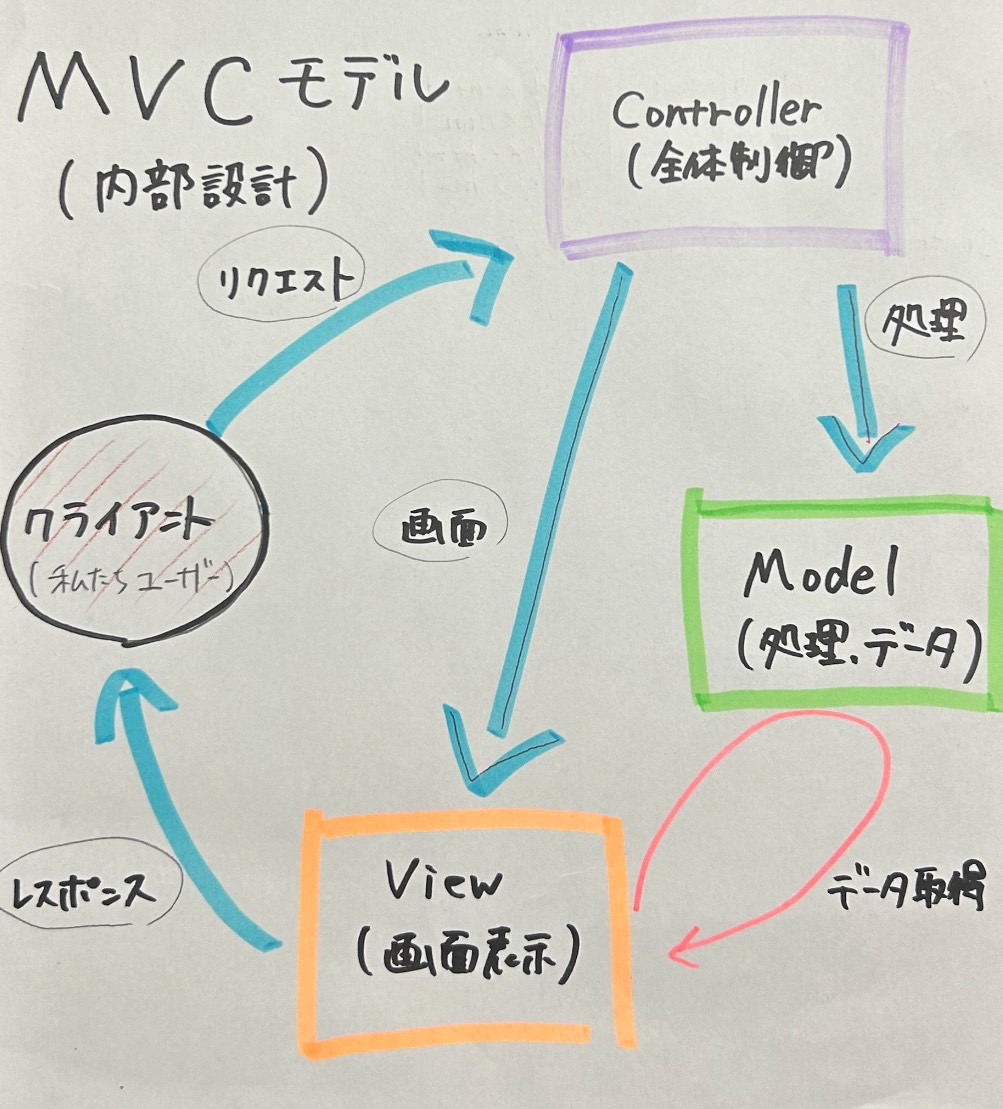 MVCモデル
(内部設計)
Controller
(全体制御)
リクエスト
処理
クライアント
(私たちユーザー)
画面
Model
(処理.データ)
レスポンス
View
(画面表示)
データ取得